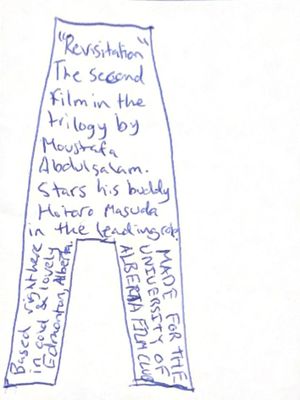 "Revisitation"
The second
film in the
trilogy by
Moustafa
Abdulsalam.
Stars his buddy
Hotaro Masuda
in the leading role.
Based right here
in good & lovely
Edmonton, Alberta.
MADE FOR THE
UNIVERSITY OF
ALBERTA FILM CLUB